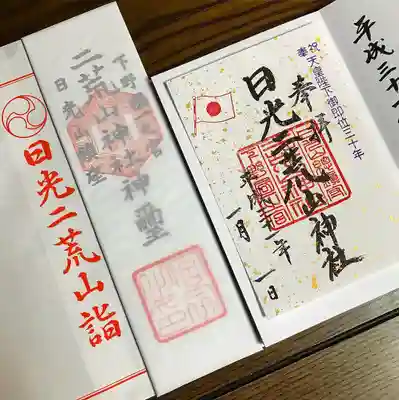 日光二荒山詣
下野國一之宮
二荒山神社神璽
日光山鎮座
奉祝 天皇陛下御即位三十年
奉拝
日光二荒山神社
平成三十一年一月一日
平成三十